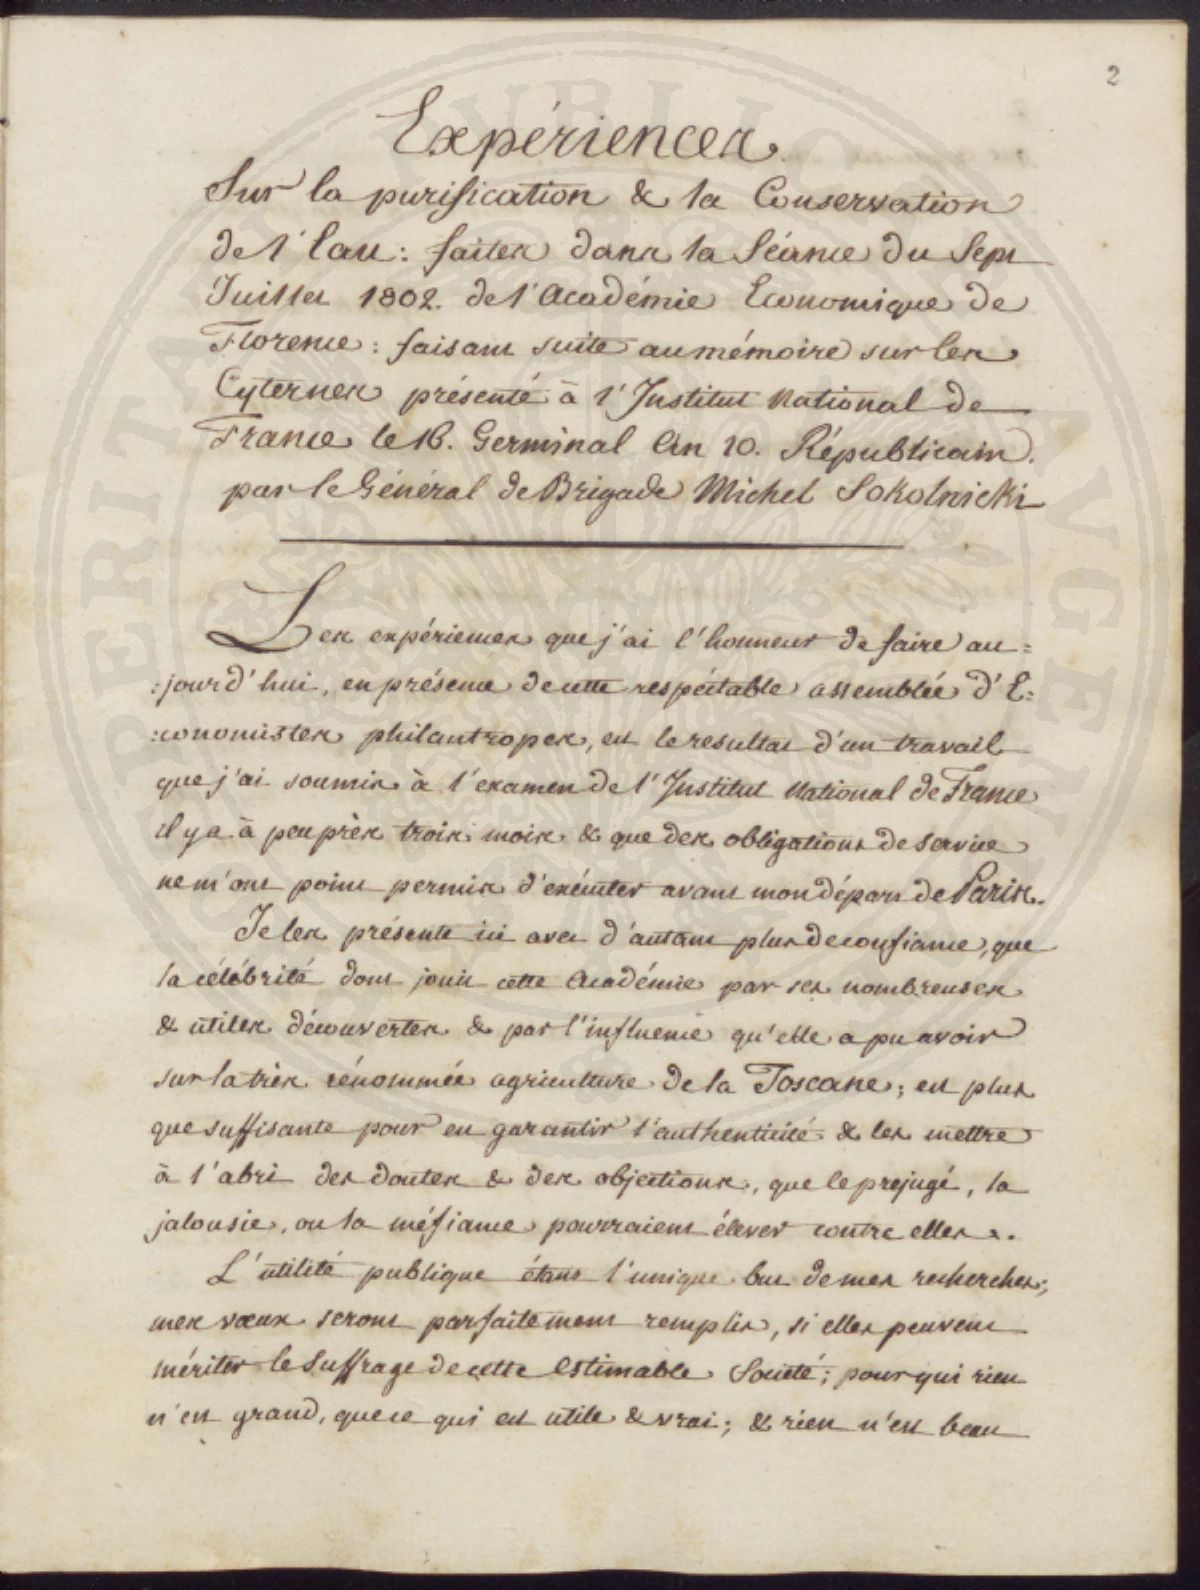 2
Expériences
Sur la purification & la Conservation
de l'Eau: faites dans la Séance du Sept
Juillet 1802. de l'Académie Economique de
Florence: faisant suite au mémoire sur les
Cyternes présenté à l'Institut National de
France le 16. Germinal An 10. Républicain.
par le Général de Brigade Michel Sokolnicki
Les expériences que j'ai l'honneur de faire au=
=jourd'hui, en présence de cette respéctable assemblée d'E=
=conomistes philantropes, est le resultat d'un travail
que j'ai soumis à l'examen de l'Institut National de France
il y a à peu près trois mois & que des obligations de service
ne m'ont point permis d'exécuter avant mon départ de Paris.
Je les présente ici avec d'autant plus de confiance, que
la célébrité dont jouit cette Académie par ses nombreuses
& utiles découvertes & par l'influence qu'elle a pu avoir
sur la très rénommée agriculture de la Toscane; est plus
que suffisante pour en garantir l'authenticité & les mettre
à l'abri des doutes & des objections, que le prejugé, la
jalousie, ou la méfiance pourraient élever contre elles.
L'utilité publique étant l'unique but de mes recherches;
mes vœux seront parfaitement remplis, si elles peuvent
mériter le Suffrage de cette estimable Société; pour qui rien
n'est grand, que ce qui est utile & vrai; & rien n'est beau
PERITA AVGENT